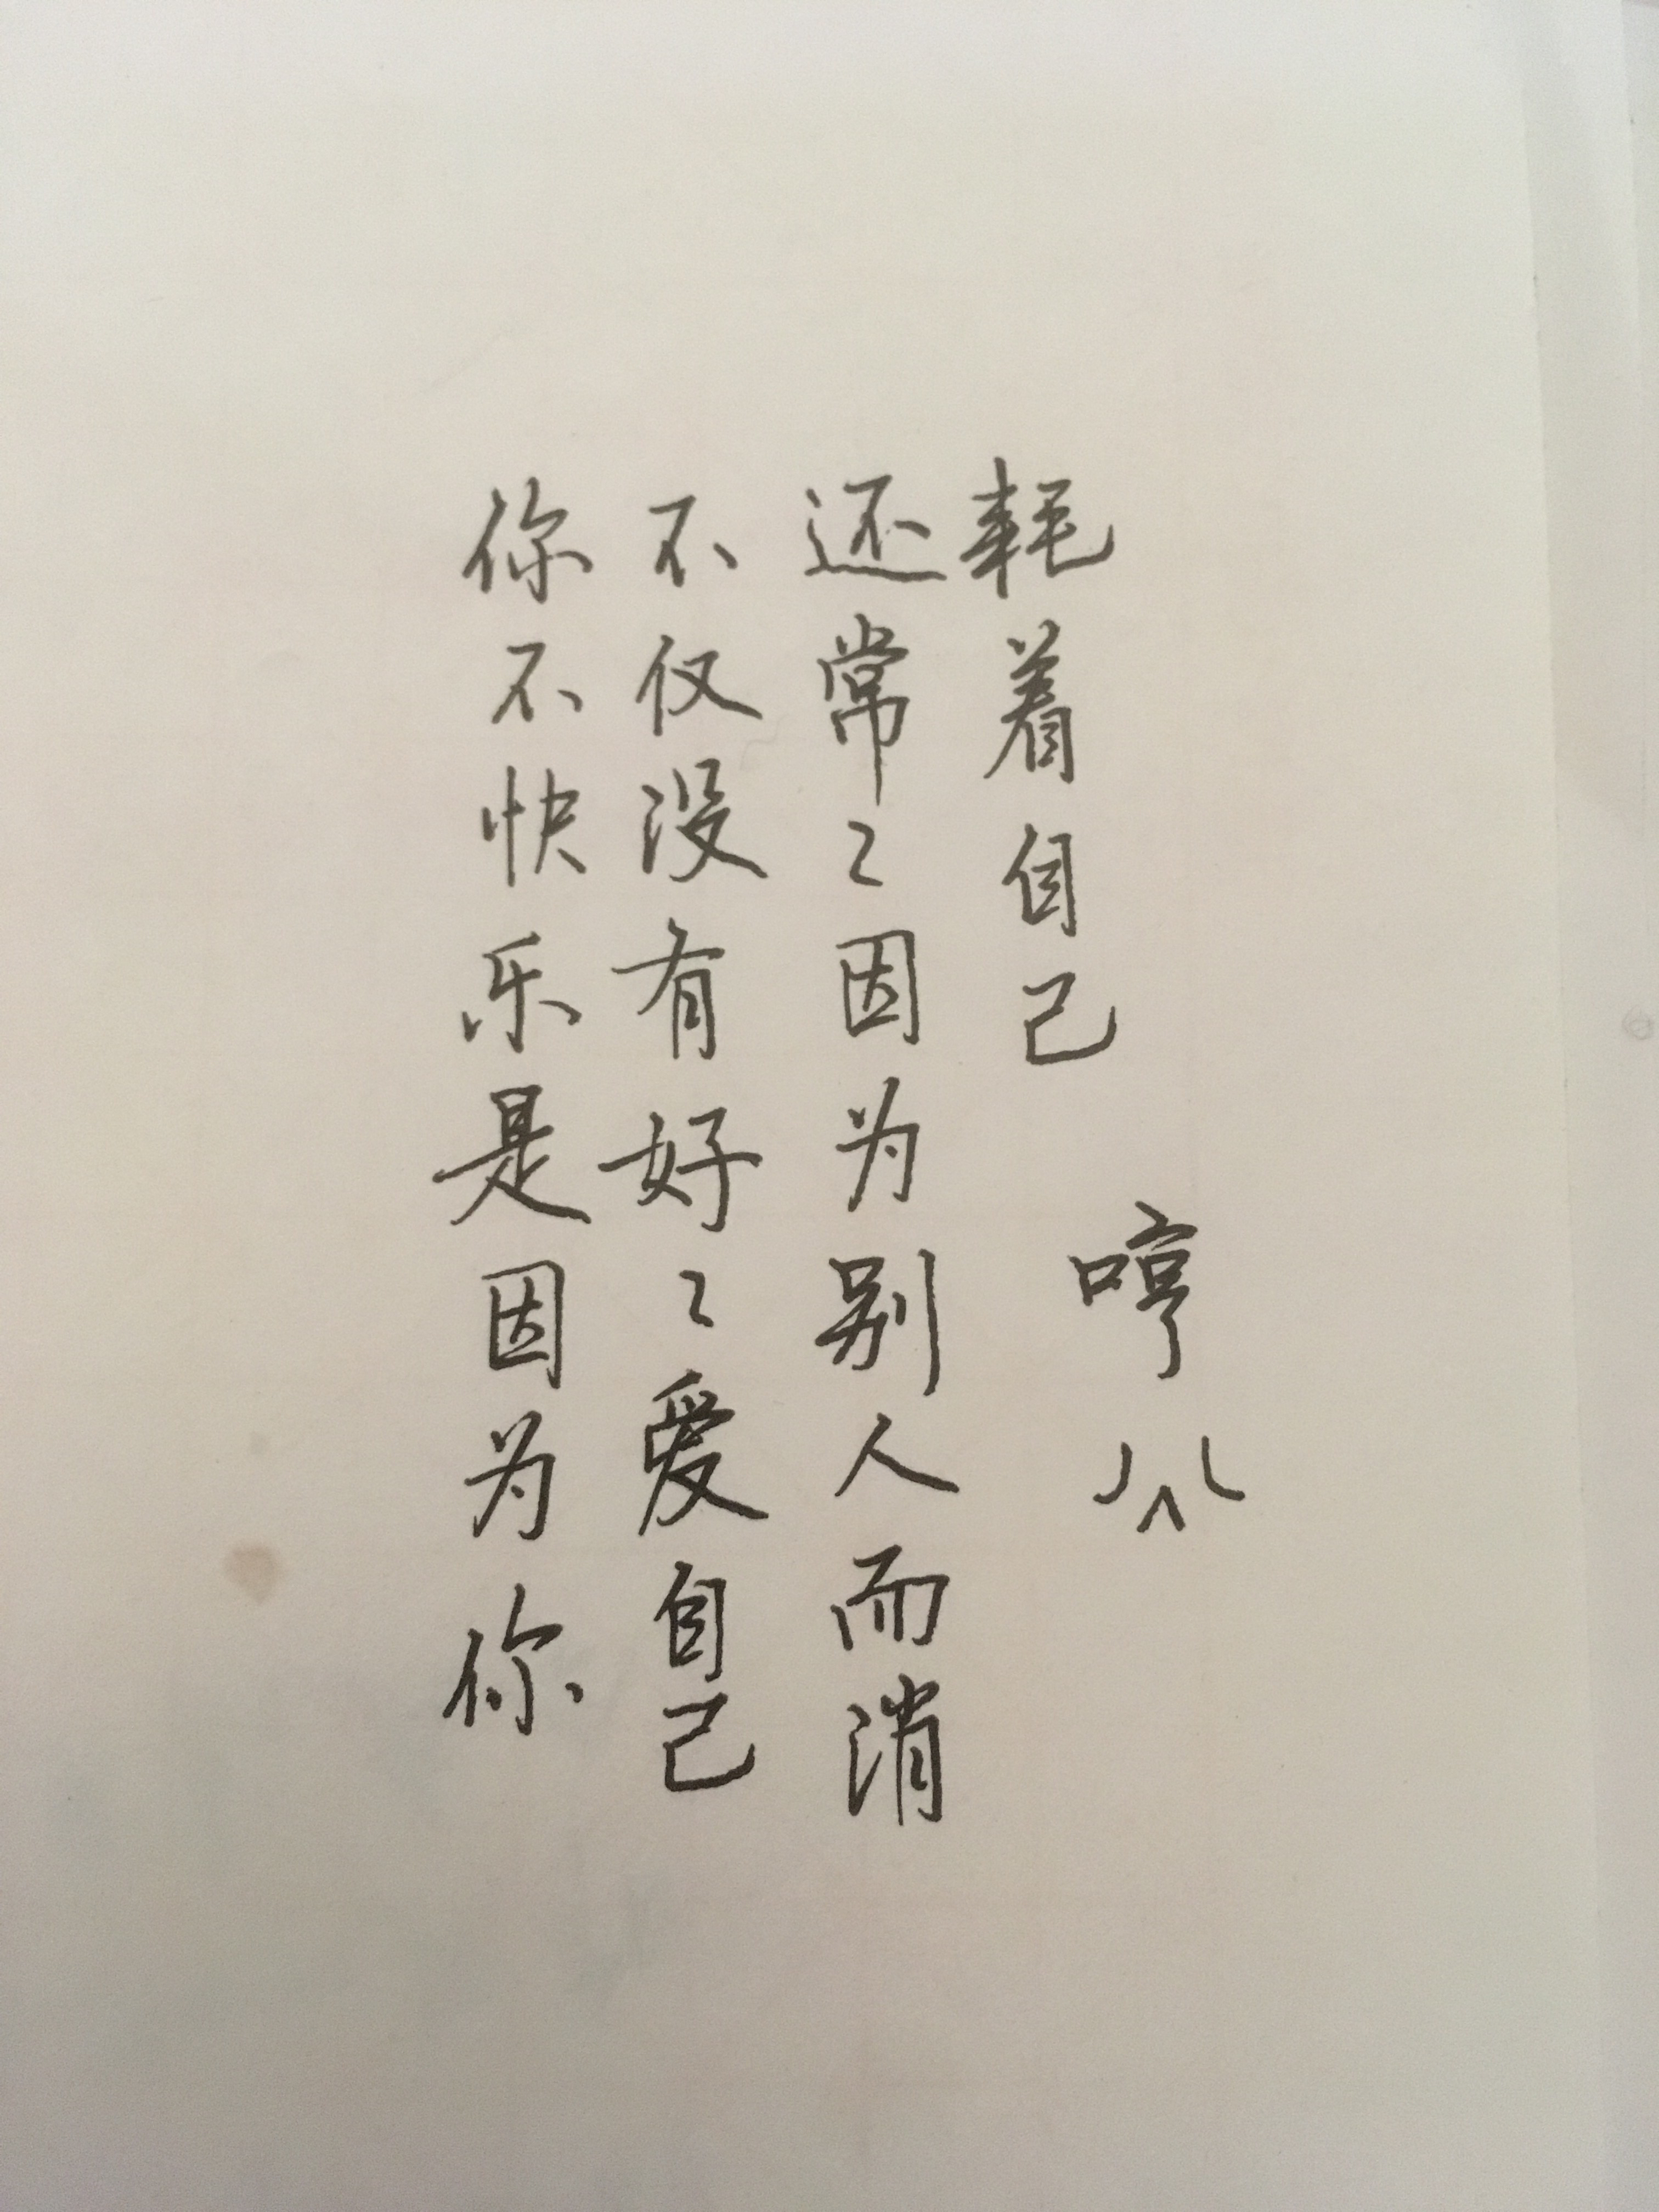 你不快乐是因为你
不仅没有好々爱自己
还常々因为别人而消
耗着自己
哼